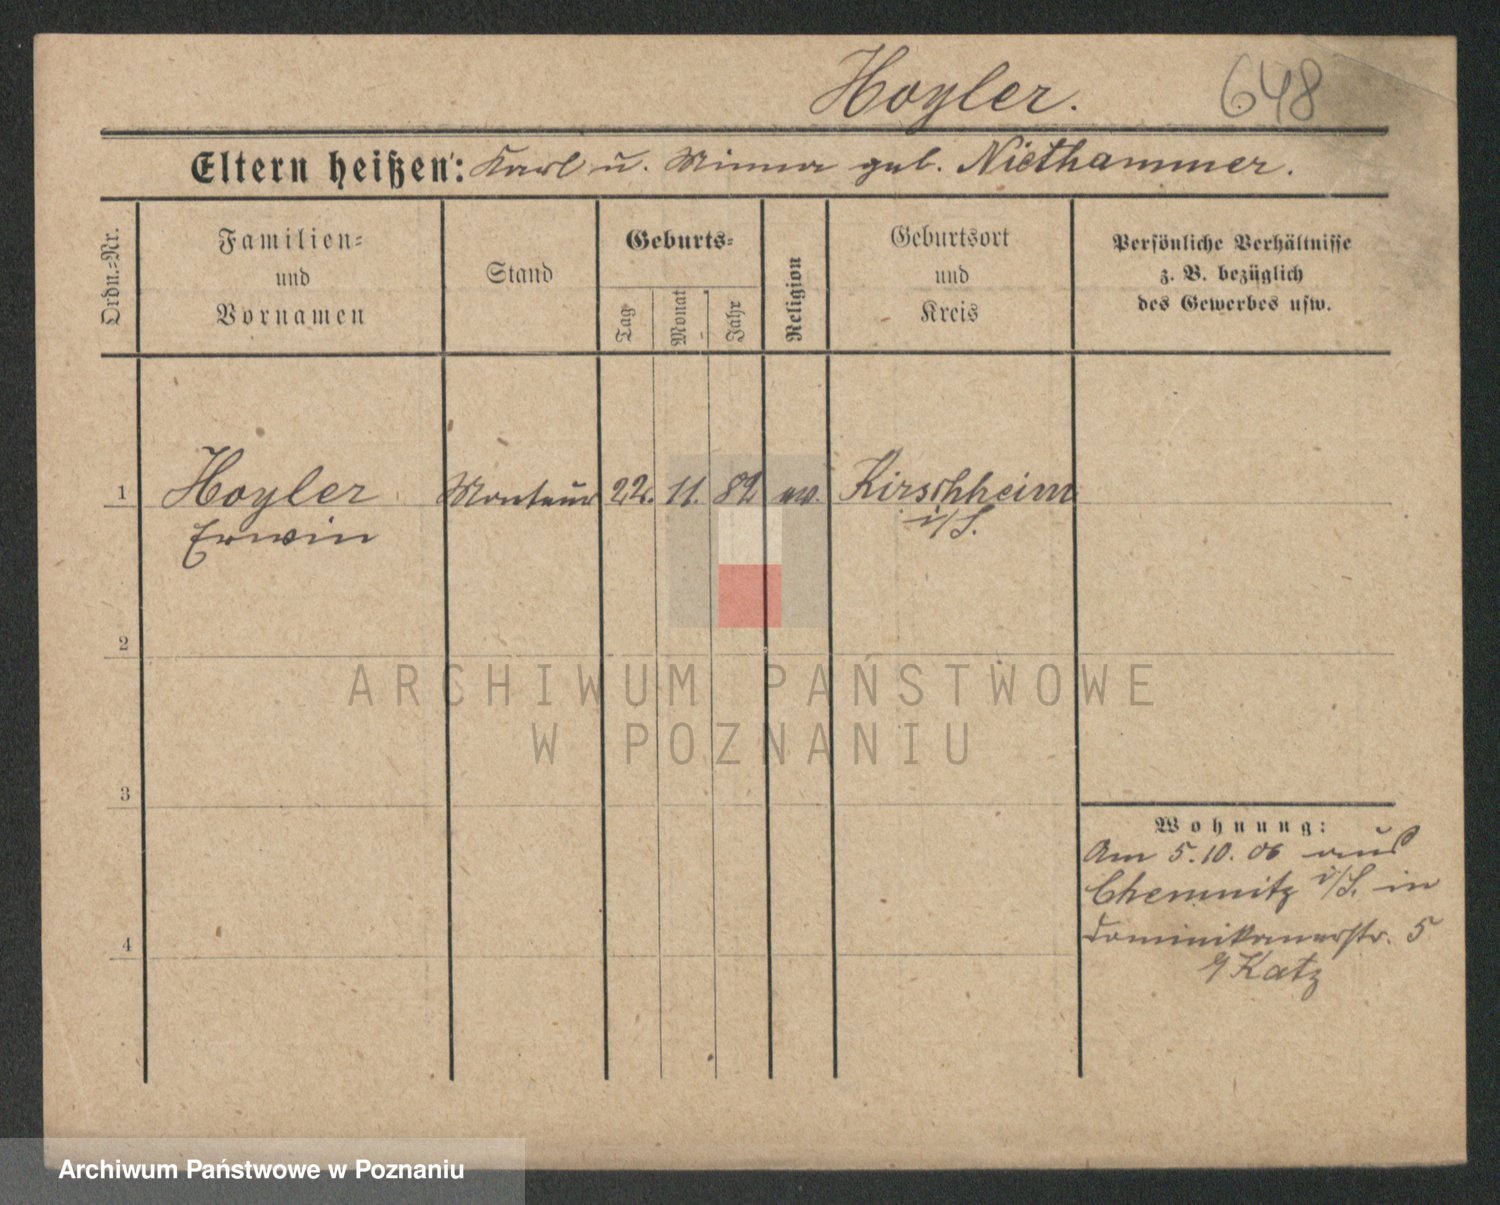 Hoyler.
648
Eltern heißen: Karl u. Minna geb. Niethammer.
Ordn.=Nr.
Familien=
und
Vornamen
Stand
Geburts=
Tag
Monat
Jahr
Religion
Geburtsort
und
Kreis
Persönliche Verhältnisse
z. B. bezüglich
des Gewerbes usw.
1 Hoyler Monteur 22. 11. 82 ev. Kirschheim
Erwin i/S.
2
3
4
Wohnung:
Am 5.10.06 aus
Chemnitz i/S. in
Dominikanerstr. 5
b/ Katz
ARCHIWUM PAŃSTWOWE
W POZNANIU
Archiwum Państwowe w Poznaniu